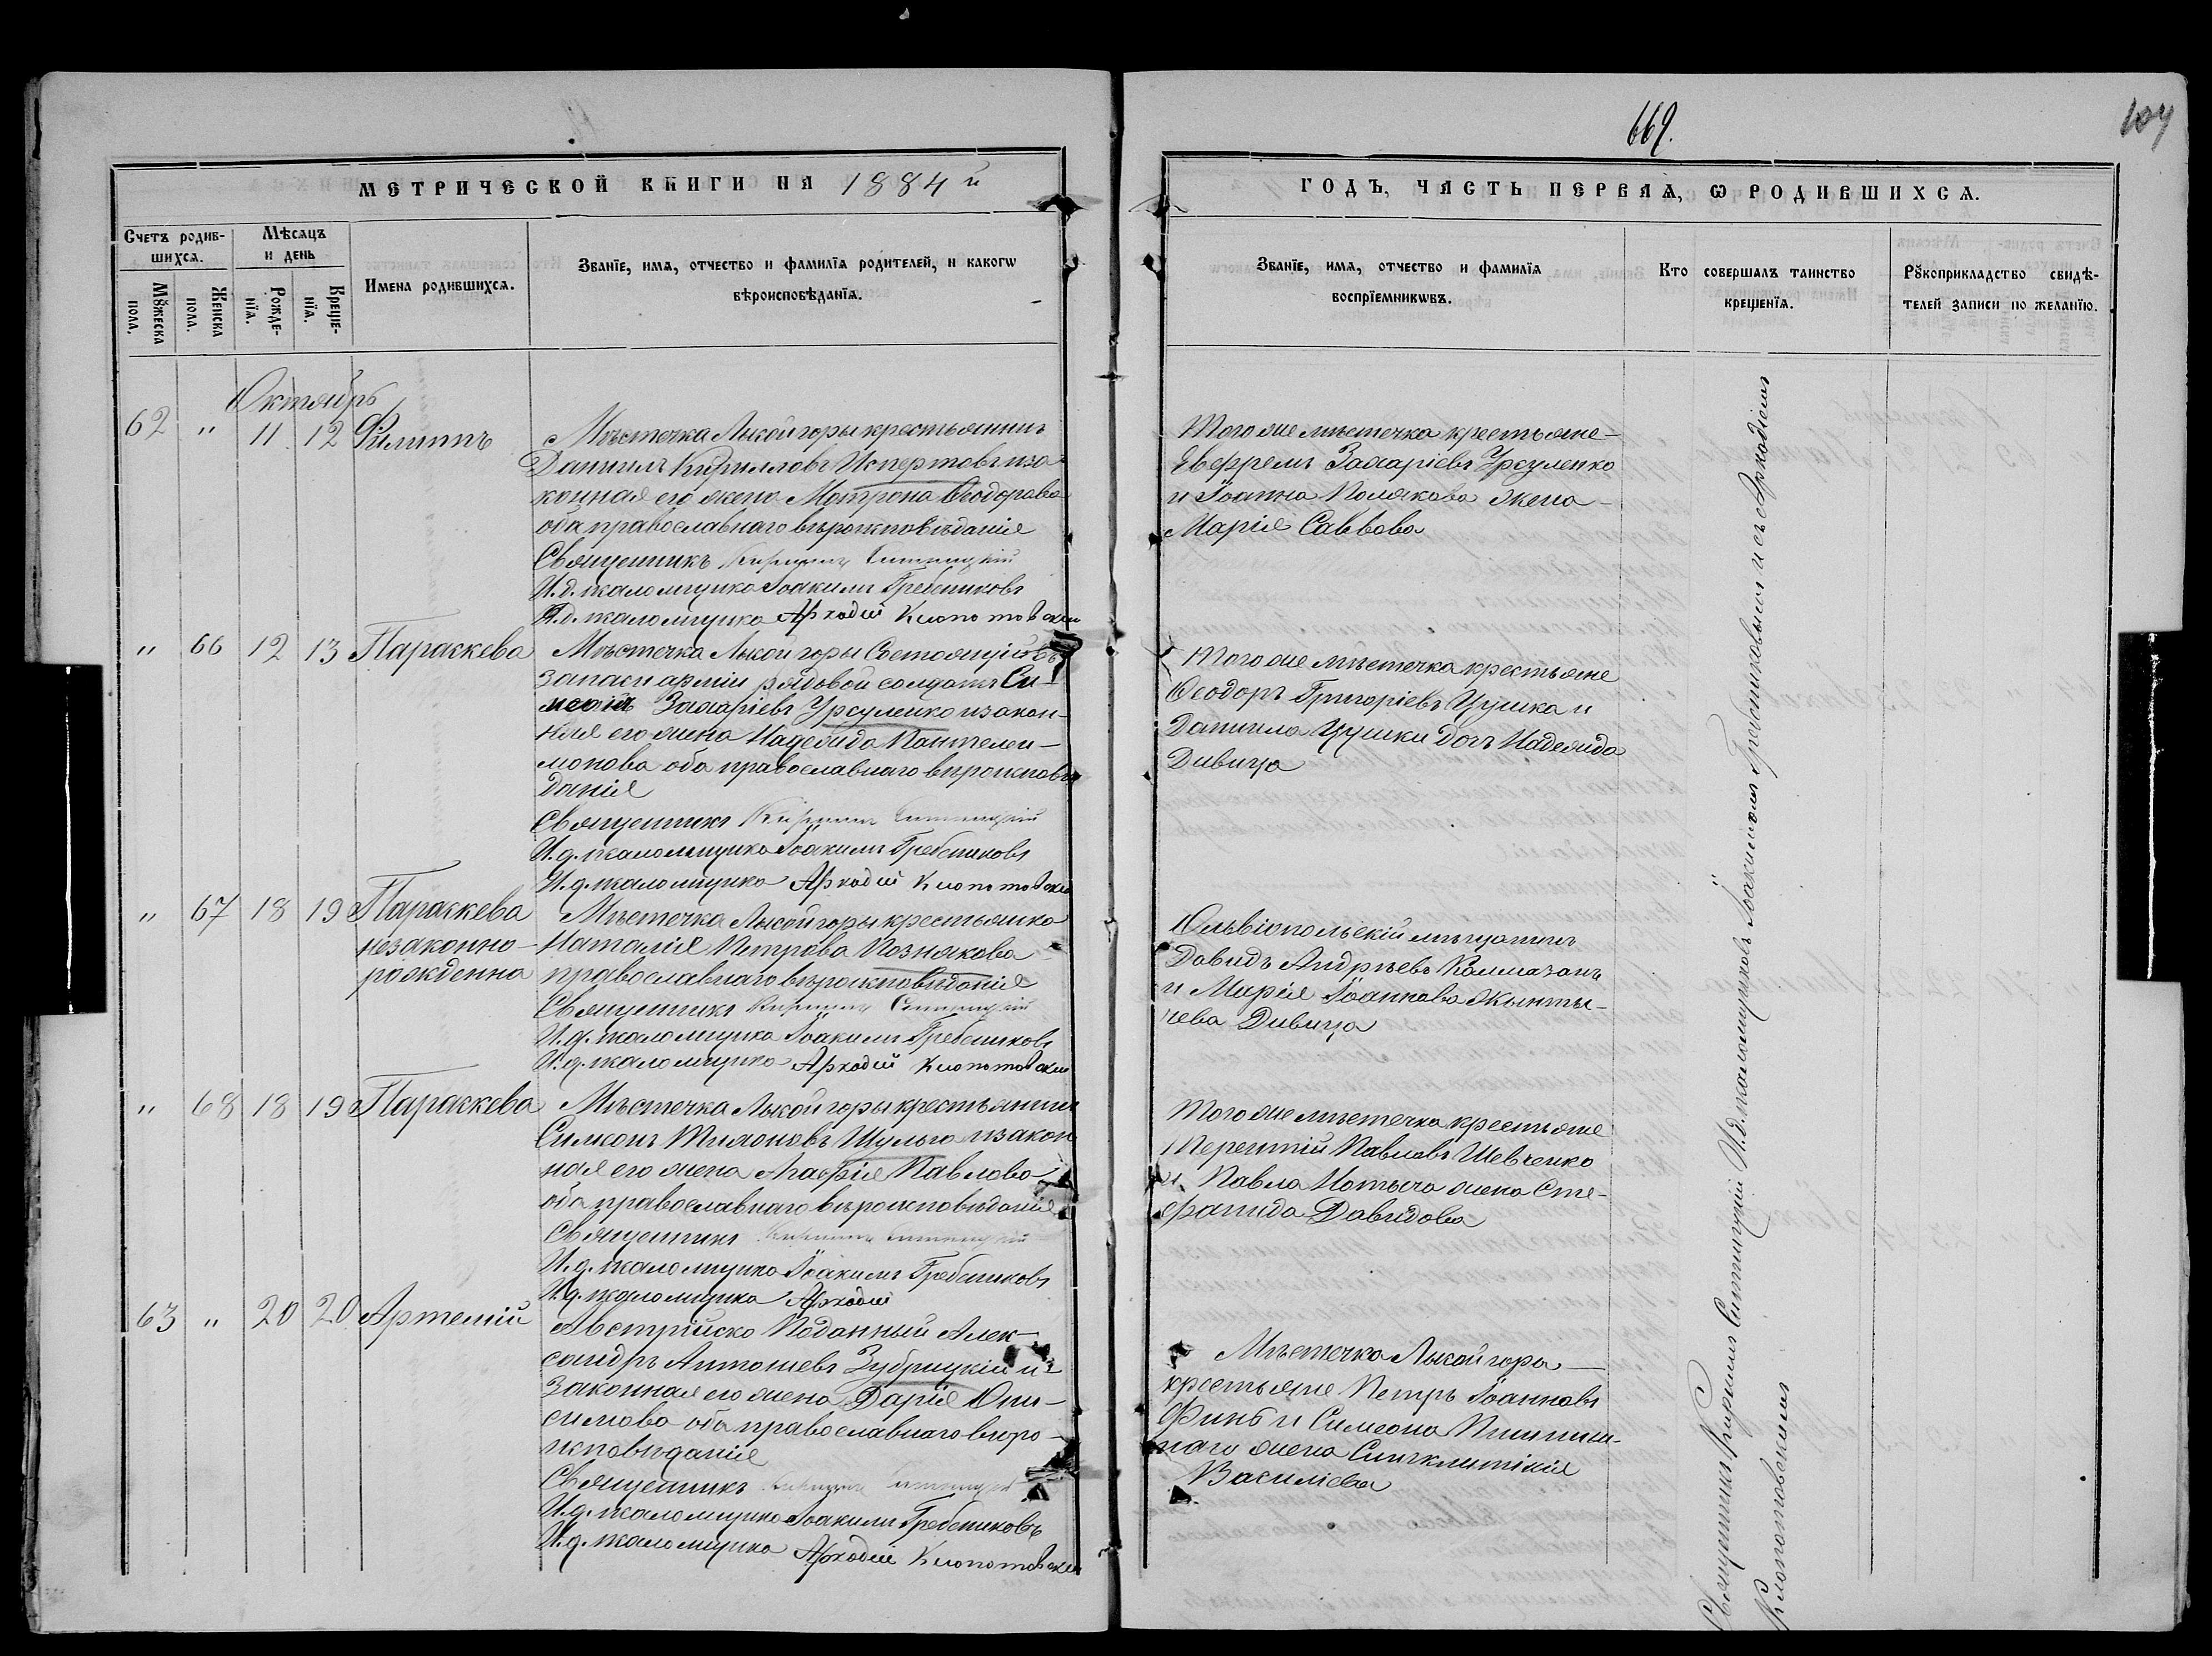 669.
104
МЕТРИЧЕСКОЙ КНИГИ НА 1884 й
ГОДЪ, ЧАСТЬ ПЕРВАЯ, Ѡ РОДИВШИХСѦ.
Счетъ родив-
шихсѧ.
Мѣсѧцъ
и день
Мꙋжеска
пола.
Женска
пола.
Рожде-
нїѧ.
Креще-
нїѧ.
Имена родившихсѧ.
Званїе, имѧ, отчество и фамилїѧ родителей, и какогѡ
вѣроисповѣданїѧ.
Званїе, имѧ, отчество и фамилїѧ
воспрїемникѡвъ.
Кто совершалъ таинство
крещенїѧ.
Рꙋкоприкладство свидѣ-
телей записи по желанїю.
Октябрь
62 " 11 12 Филиппъ
Мѣстечка Лысой горы крестьянинъ
Даніилъ Кирилловъ и зa
конная его жена Матрона Ѳеодорова
оба православнаго вѣроисповѣданія
Священникъ Кириллъ Ситницкій
И.д. псаломщика Іоакимъ Гребениковъ
И.д. псаломщика Аркадій Клопотовскій
Того же мѣстечка крестьяне
Евфремъ Захаріевъ Урсуленко
и Іоанна Полякова жена
Марія Саввова
" 66 12 13 Параскева
Мѣстечка Лысой горы Состоящій въ
запасѣ арміи рядовой солдатъ Си-
меонъ Захаріевъ Урсуленко и закон-
ная его жена Надежда Пантелеи-
монова оба православнаго вѣроисповѣ
данія
Священникъ Кириллъ Ситницкій
И.д. псаломщика Іоакимъ Гребениковъ
И.д. псаломщика Аркадій Клопотовскій
Того же мѣстечка крестьяне
Ѳеодоръ Григоріевъ Цушка и
Даниила Цушки дочь Надежда
Дивица
" 67 18 19 Параскева
незаконно-
рожденна
Мѣстечка Лысой горы крестьянка
Наталія Петрова Познякова
православнаго вѣроисповѣданія
Священникъ Кириллъ Ситницкій
И.д. псаломщика Іоакимъ Гребениковъ
И.д. псаломщика Аркадій Клопотовскій
Ольвіопольскій мѣщанинъ
Давидъ Андреевъ Калмазанъ
и Марія Іоаннова
Дивица
" 68 18 19 Параскева
Мѣстечка Лысой горы крестьянинъ
Симеонъ Тихоновъ Шульга и закон
ная его жена Агафія Павлова
оба православнаго вѣроисповѣданія
Священникъ Кириллъ Ситницкій
И.д. псаломщика Іоакимъ Гребениковъ
И.д. псаломщика Аркадій
Того же мѣстечка крестьяне
Терентій Павловъ Шевченко
и Павла жена Сте-
фанида Давидова
63 " 20 20 Артемій
Австрійско Поданный Алек-
сандръ Антоніевъ Зубрицкій и
Законная его жена Дарія Они-
симова оба православнаго вѣро-
исповѣданія
Священникъ Кириллъ Ситницкій
И.д. псаломщика Іоакимъ Гребениковъ
И.д. псаломщика Аркадій Клопотовскій
Мѣстечка Лысой гора
крестьяне Петръ Іоанновъ
и Симеона
жена Синклитикія
Василіева
Священникъ Кириллъ Ситницкій И.д. псаломщиковъ Іоакимомъ Гребениковымъ и съ Аркадіемъ
Клопотовскимъ